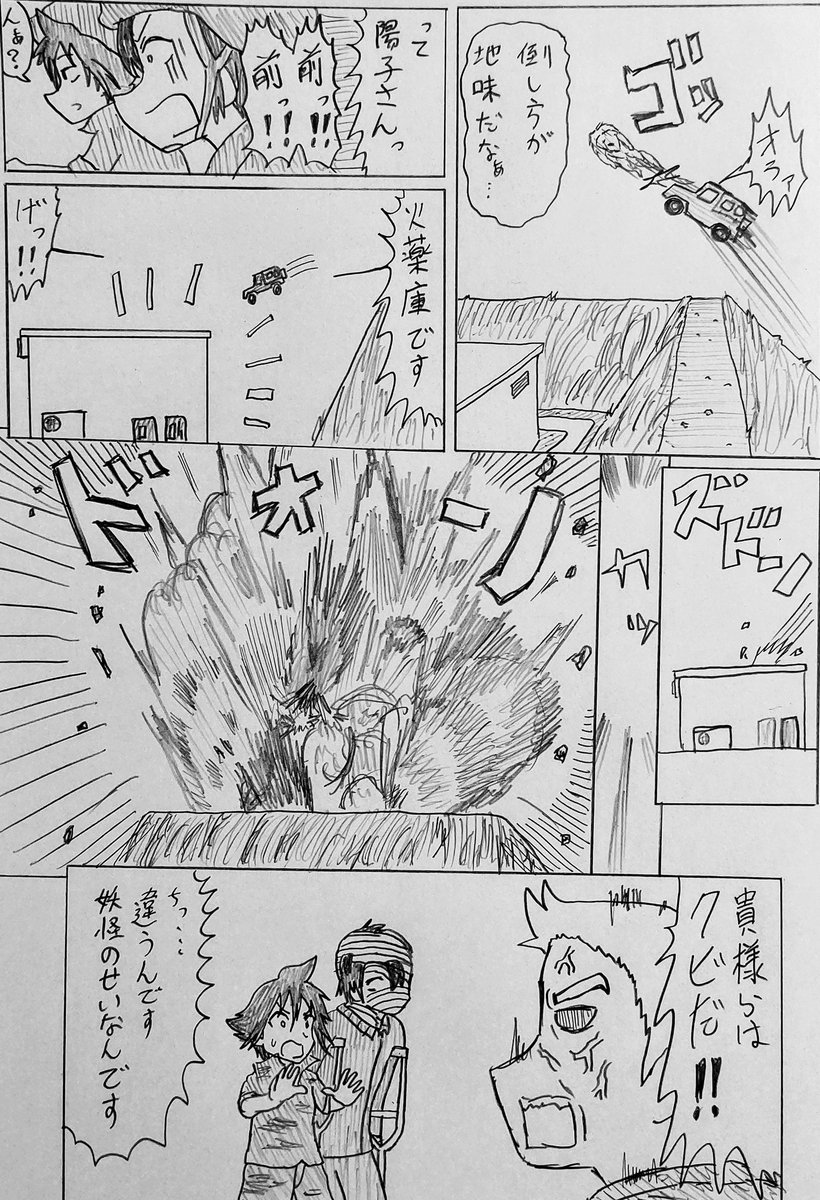 オラァ
ゴッ
倒し方が
地味だなぁ…
って
陽子さんっ
前っ!!
前っ!!
んぁ?
火薬庫です
げっ!!
ズドドーン
カッ
ドォーン
貴様らは
クビだ!!
ちっ…
違うんです
妖怪のせいなんです